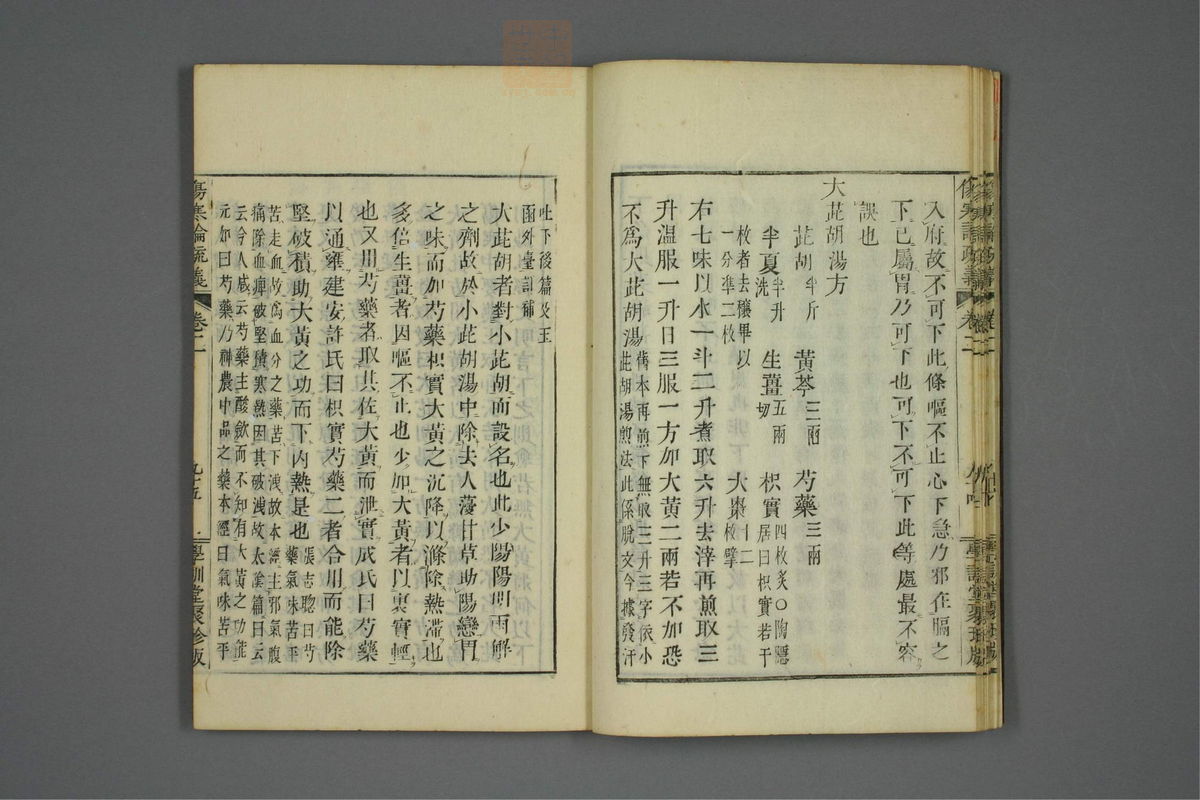 入府故不可下此條嘔不止心下急乃邪在膈之
下已屬胃乃可下也可下不可下此等處最不容
誤也
大茈胡湯方
茈胡半斤 黃芩三兩 芍藥三兩
半夏半升洗 生薑五兩切 枳實四枚炙〇陶隱居曰枳實若干
枚者去穰畢以一分準二枚 大棗十二枚擘
右七味以水一斗二升煮取六升去滓再煎取三
升溫服一升日三服一方加大黃二兩若不加恐
不爲大茈胡湯舊本再煎下無取三升三字依小茈胡湯煎法此係脫文今據發汗
吐下後篇及玉函外臺訂補
大茈胡者對小茈胡而設名也此少陽陽明兩解
之劑故於小茈胡湯中除去人薓甘草助陽戀胃
之味而加芍藥枳實大黃之沉降以滌除熱滯也
多倍生薑者因嘔不止也少加大黃者以裏實輕
也又用芍藥者取其佐大黃而泄實成氏曰芍藥
以通壅建安許氏曰枳實芍藥二者合用而能除
堅破積助大黃之功而下內熱是也張志聰曰芍藥氣味苦平
苦走血故爲血分之藥苦下洩故本經主邪氣腹
痛除血痺破堅積寒熱因其破洩故太陰篇曰云
云今人咸云芍藥主酸斂而不知有大黃之功能
元如曰芍藥乃神農中品之藥本經曰氣味苦平
傷寒論疏義
卷二
九十五
學訓堂聚珍版